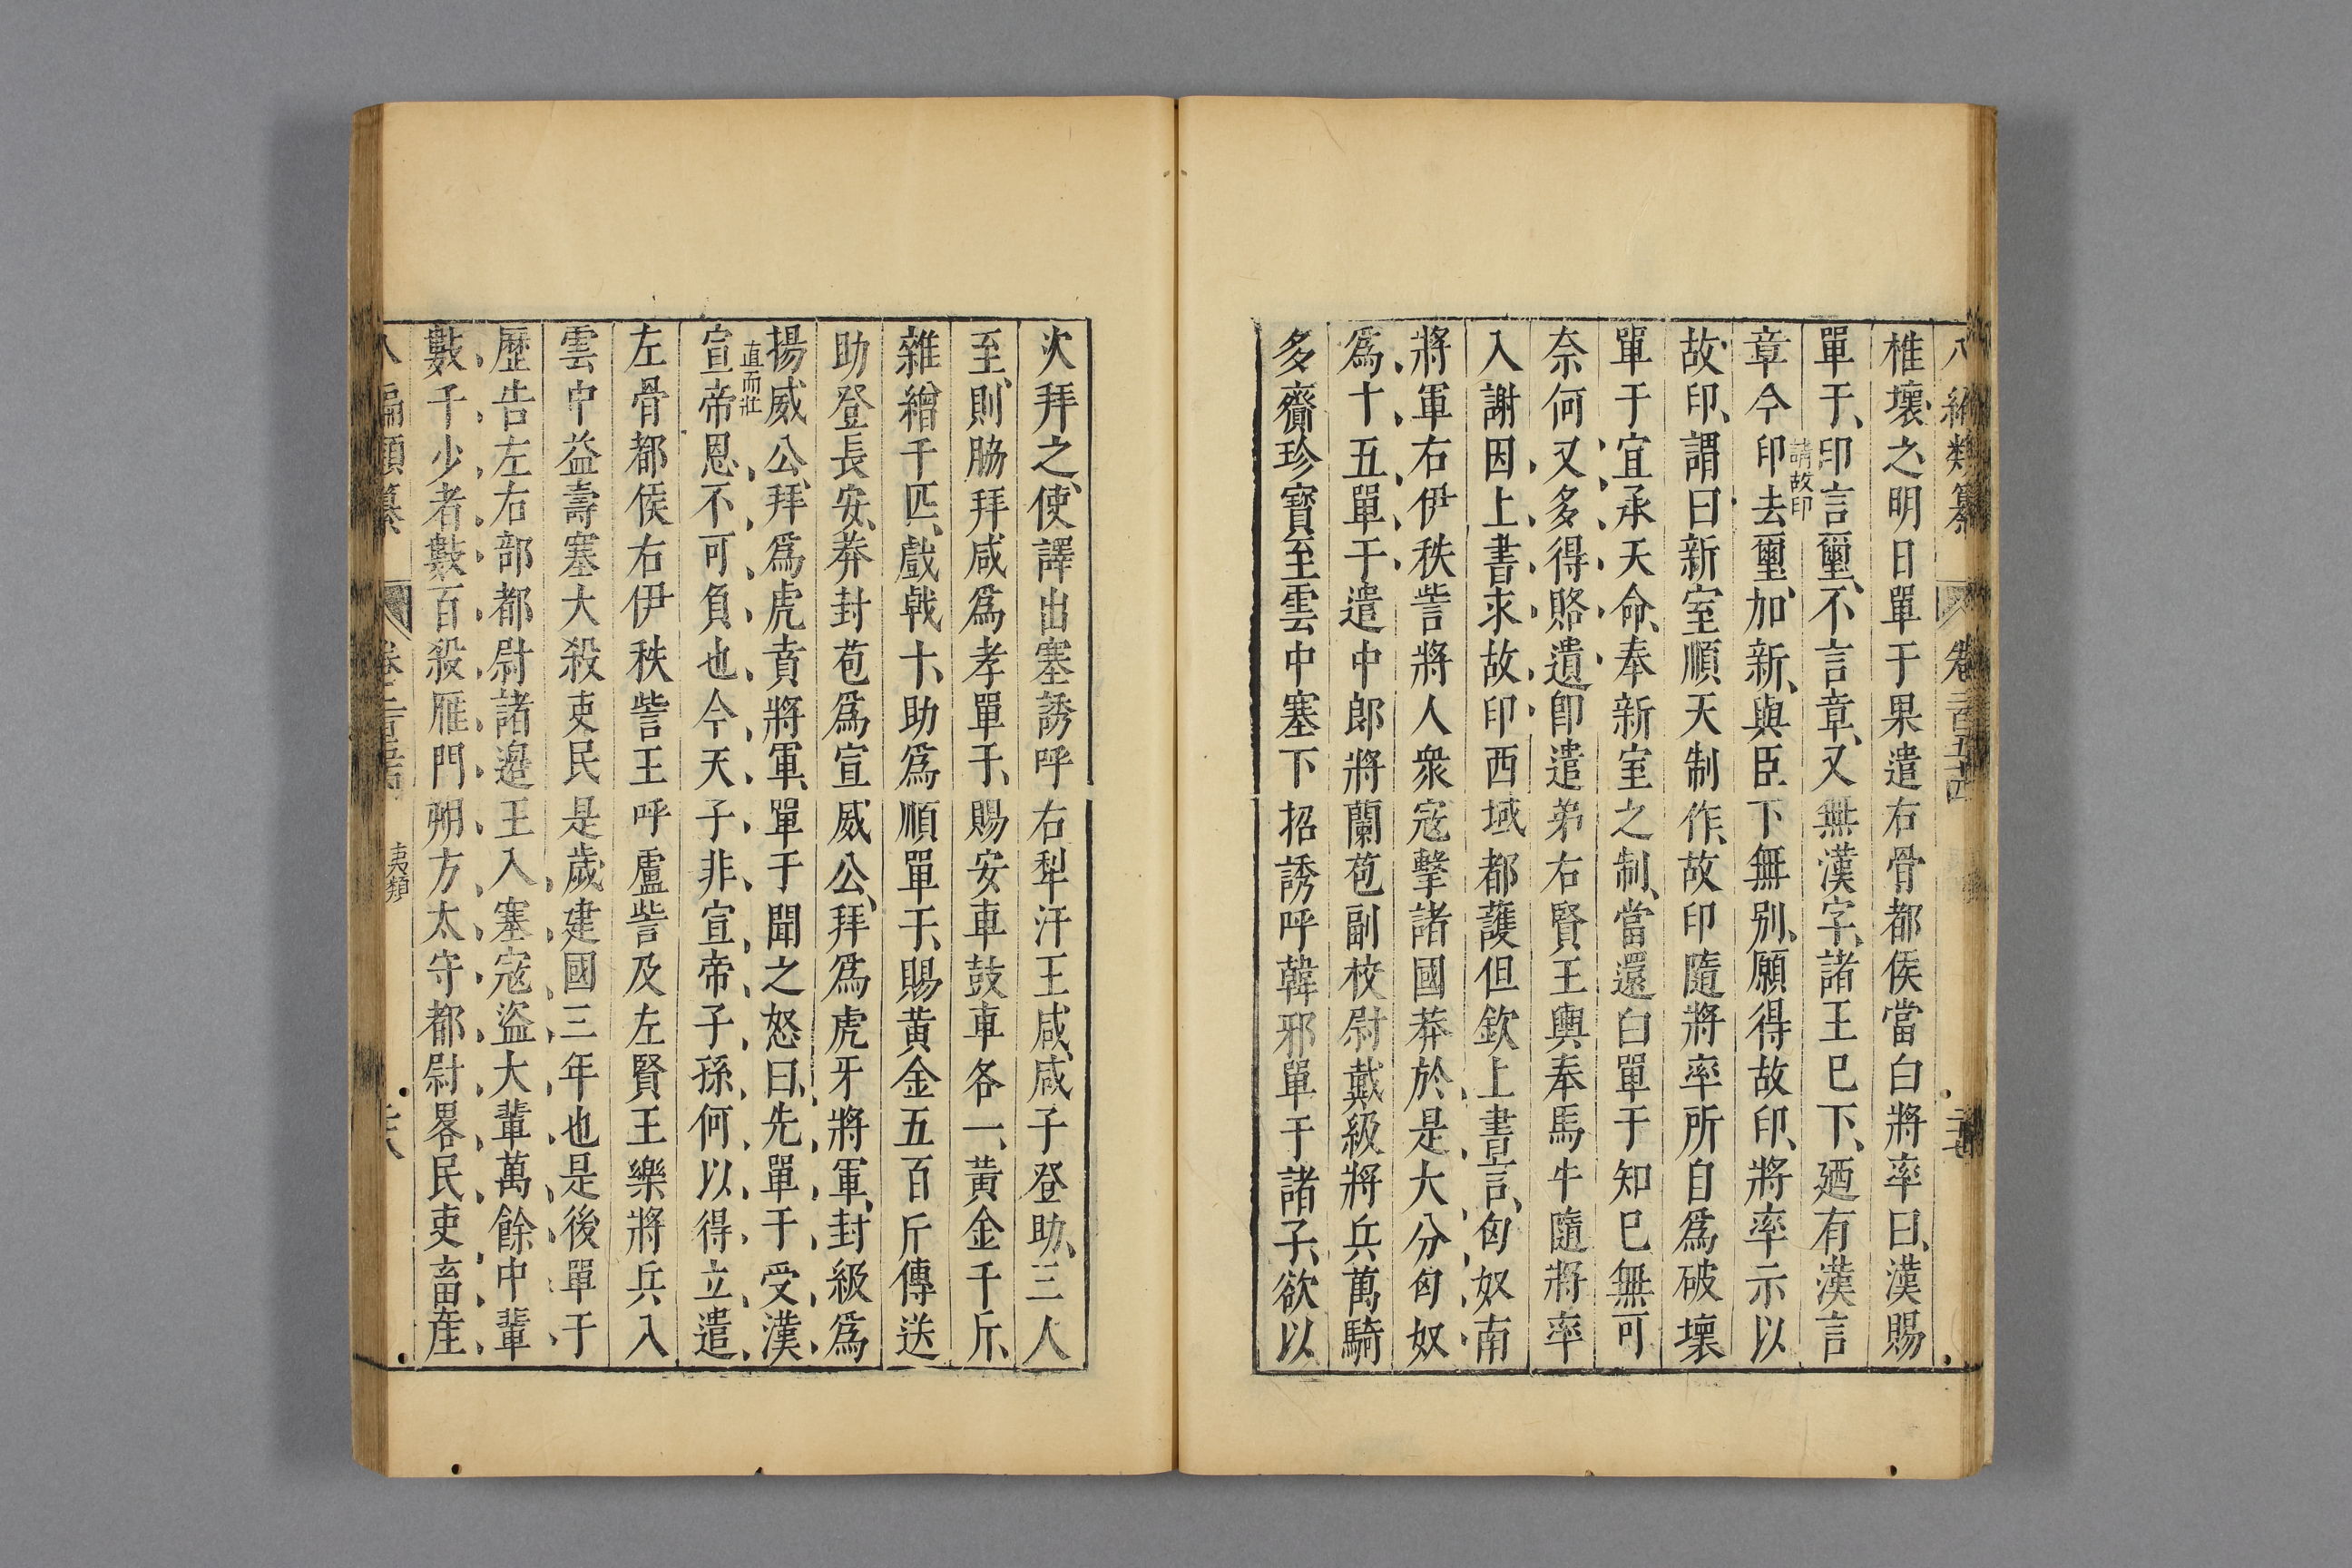 八編類纂 卷二百五十四 二十七
椎壞之明日單于果遣右骨都侯當白將率曰、漢賜
單于、印言璽、不言章、又無漢字、諸王已下、廼有漢言
請故印
章今印去璽、加新、與臣下無别、願得故印、將率示以
故印、謂曰新室順天制作、故印隨將率所自爲破壞
單于宜承天命、奉新室之制、當還白單于知已無可
奈何又多得賂遺卽遣弟右賢王輿奉馬牛隨將率
入謝因上書求故印西域都護但欽上書言、匈奴南
將軍右伊秩訾將人衆寇擊諸國莽於是大分匈奴
爲十五單于遣中郎將蘭苞副校尉戴級將兵萬騎
多齎珍寶至雲中塞下招誘呼韓邪單于諸子、欲以
次拜之、使譯出塞誘呼右犁汗王咸、咸子登助、三人
至、則脇拜咸爲孝單于、賜安車鼓車各一、黄金千斤、
雜繒千匹、戲戟十、助爲順單于、賜黄金五百斤傳送
助登長安、莽封苞爲宣威公、拜爲虎牙將軍、封級爲
揚威公、拜爲虎賁將軍、單于聞之怒曰、先單于受漢
直而壯
宣帝恩、不可負也今天子非宣帝子孫何以得立遣
左骨都侯右伊秩訾王呼盧訾及左賢王樂將兵入
雲中益壽塞大殺吏民是歲建國三年也是後單于
歷告左右部都尉諸邊王入塞寇盜大輩萬餘中輩
數千少者數百殺雁門朔方太守都尉畧民吏畜產
八編類纂 卷二百五十四 夷類 二十八